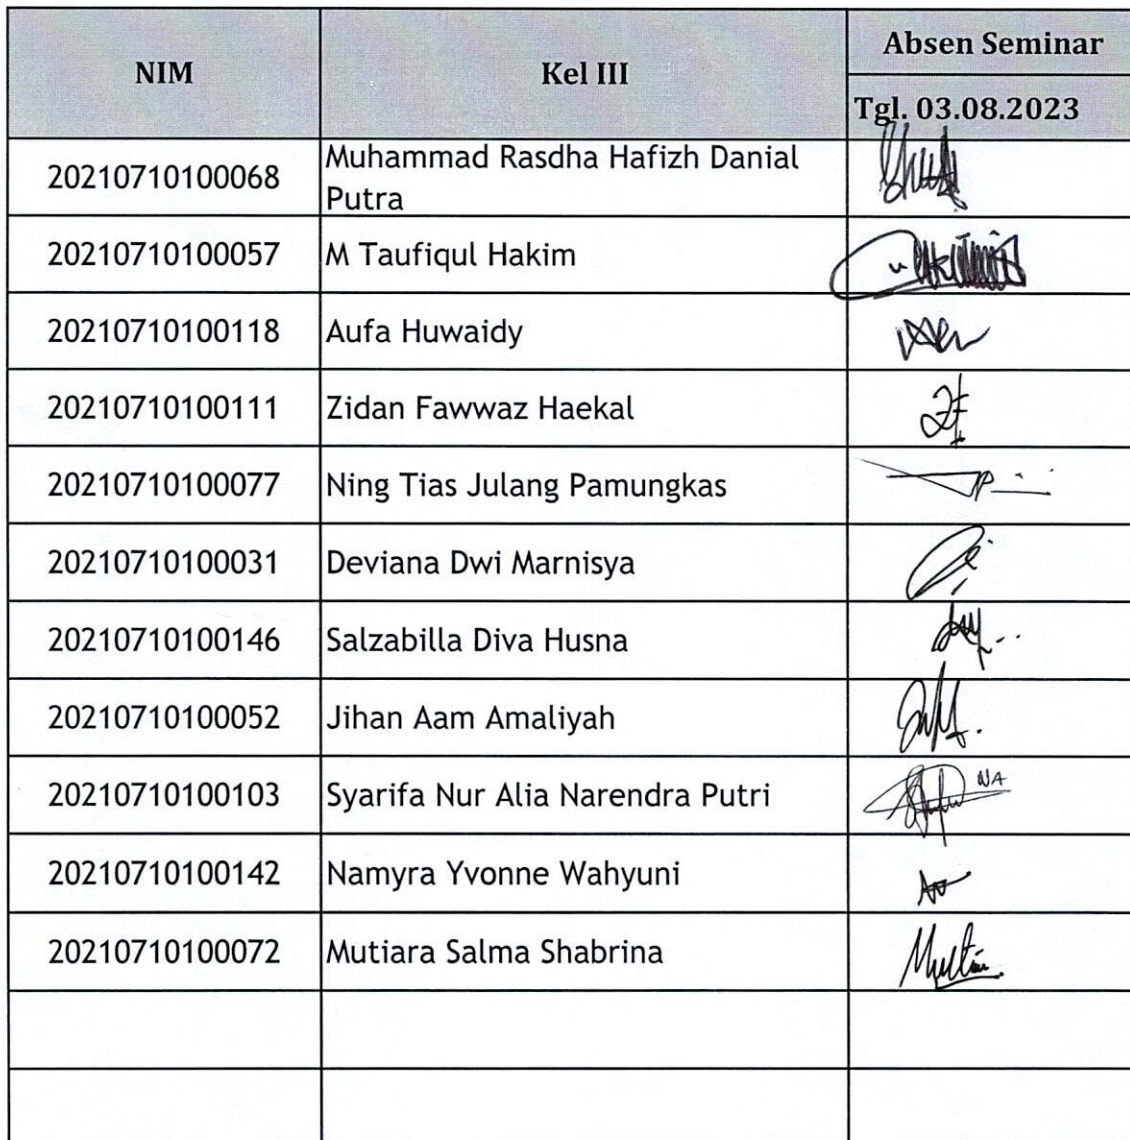 NIM Kel III Absen Seminar
Tgl. 03.08.2023
20210710100068 Muhammad Rasdha Hafizh Danial
Putra
20210710100057 M Taufiqul Hakim
20210710100118 Aufa Huwaidy
20210710100111 Zidan Fawwaz Haekal
20210710100077 Ning Tias Julang Pamungkas
20210710100031 Deviana Dwi Marnisya
20210710100146 Salzabilla Diva Husna
20210710100052 Jihan Aam Amaliyah
20210710100103 Syarifa Nur Alia Narendra Putri NA
20210710100142 Namyra Yvonne Wahyuni
20210710100072 Mutiara Salma Shabrina